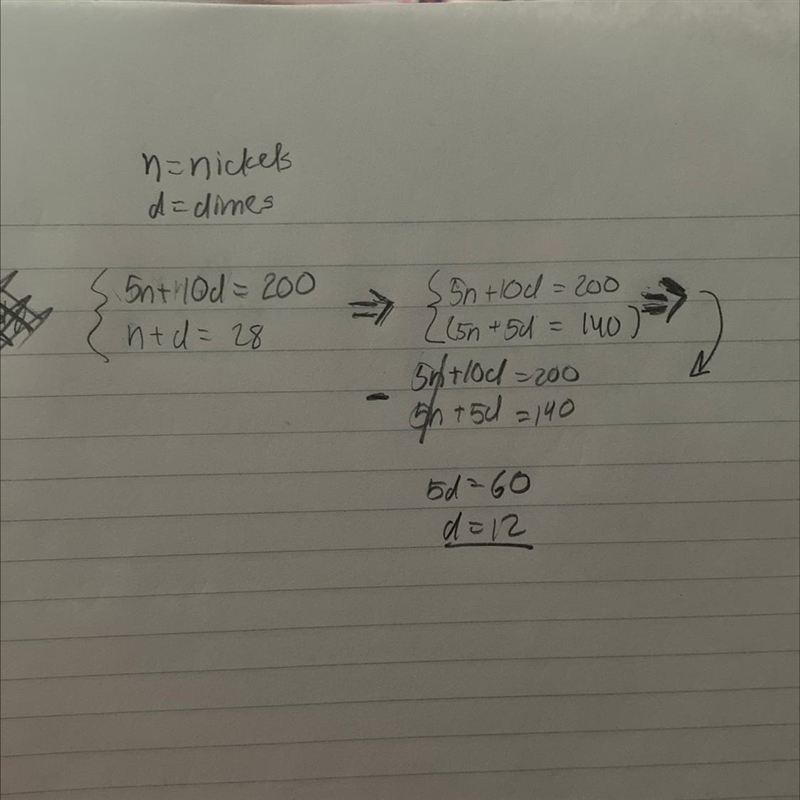 n=nickels
d=dimes
5n+10d=200
n+d=28
⇒
5n+10d=200
(5n+5d=140)
⇒
5n+10d=200
-
5n+5d=140
5d=60
d=12